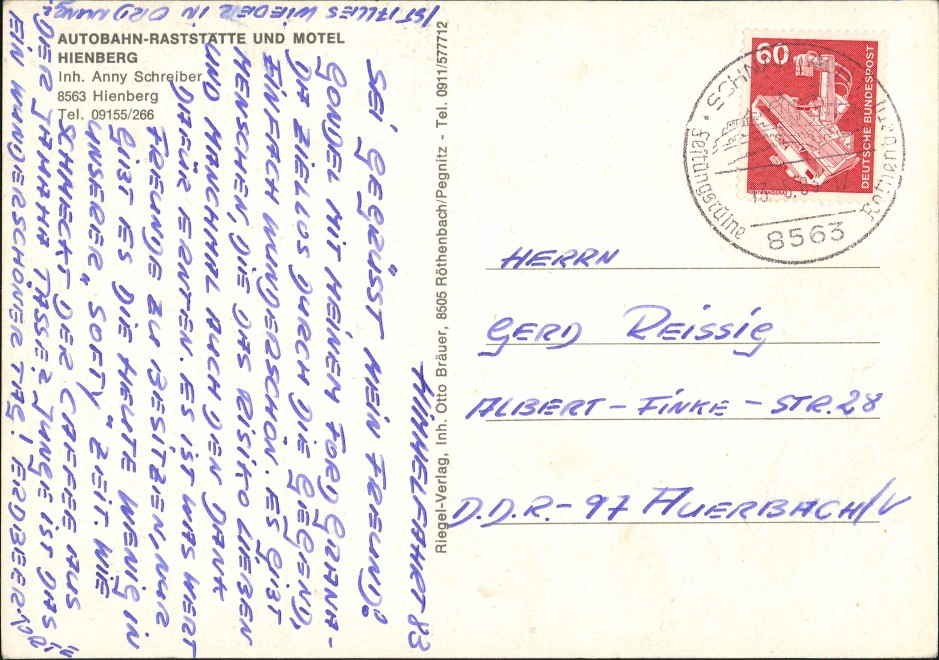 AUTOBAHN-RASTSTÄTTE UND MOTEL
HIENBERG
Inh. Anny Schreiber
8563 Hienberg
Tel. 09155/266
HIMMELFAHRT 83
SEI GEGRÜSST MEIN FREUND!
GONDEL MIT MEINEM FORD GRANA-
DA ZIELLOS DURCH DIE GEGEND,
EINFACH WUNDERSCHÖN. ES GIBT
MENSCHEN, DIE DAS RISIKO LIEBEN
UND MANCHMAL AUCH DEN DANK
DAFÜR ERNTEN. ES IST WAS WERT
FREUNDE ZU BESITZEN, NUR
GIBT ES DIE HEUTE WENIG IN
UNSERER „SOFTY" ZEIT. WIE
SCHMECKT DER CAFFEE AUS
DER YAMAHA TASSE? JUNGE IST DAS
EIN WUNDERSCHÖNER TAG! ERDBEERTORTE
IST ALLES WIEDER IN ORDNUNG?
Riegel-Verlag, Inh. Otto Bräuer, 8505 Röthenbach/Pegnitz - Tel. 0911/577712
60
DEUTSCHE BUNDESPOST
Festungsruine
Rothenberg
8563
HERRN
GERD REISSIG
ALBERT-FINKE-STR. 28
D.D.R.-97 AUERBACH/V